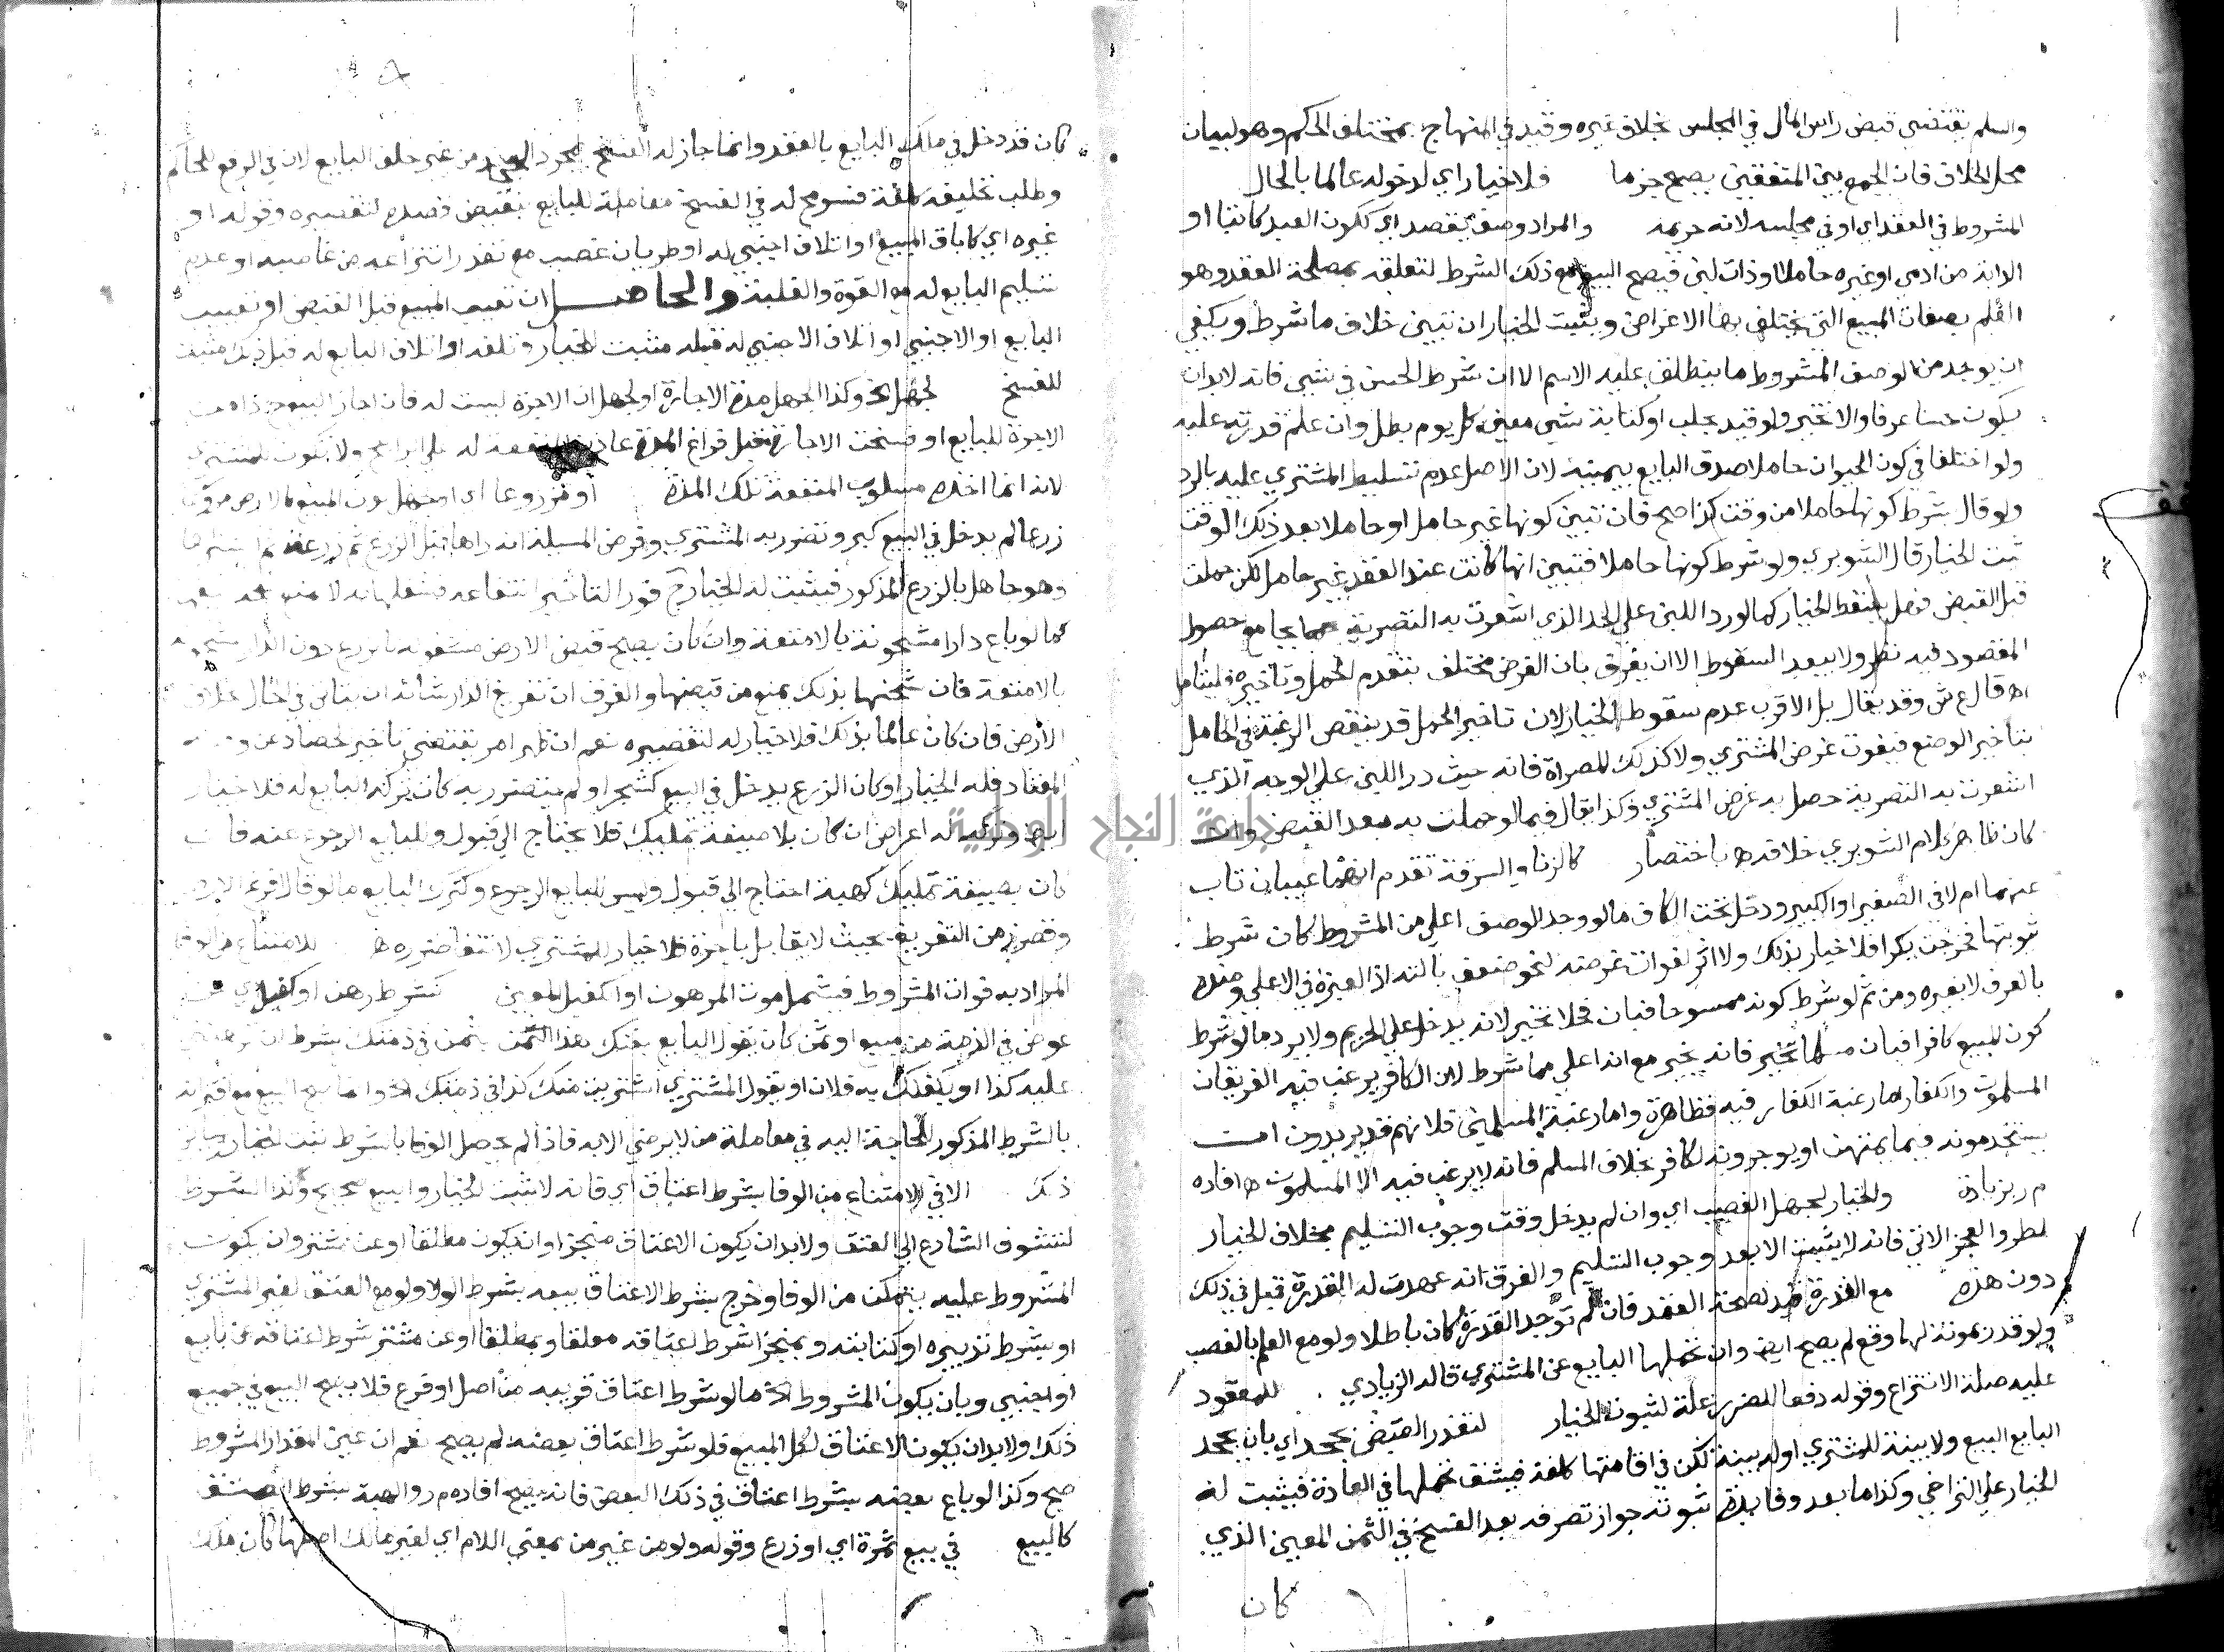 والسلم يقتضي قبض راس المال في المجلس بخلاف غيره وقيد في المنهاج بمختلفي الحكم وهو لبيان
محل الخلاف فان الجمع بين المتفقين يصح جزما فلا خيار اي لدخوله عالما بالحال
المشروط في العقد اي او في مجلسه لانه حريمه والمراد وصف يقصد اي ككون العبد كاتبا او
الدابة من ادمي او غيره حاملا او ذات لبن فيصح البيع مع ذلك الشرط لتعلقه بمصلحة العقد وهو
العلم بصفات المبيع التي يختلف بها الاغراض ويثبت الخيار ان تبين خلاف ما شرط ويكفي
ان يوجد من الوصف المشروط ما ينطلق عليه الاسم الا ان شرط الحسن في شيي فانه لا بد ان
يكون حسنا عرفا والا تخير ولو قيد بحلب او كتابة شيي معين كل يوم بطل وان علم قدرته عليه
ولو اختلفا في كون الحيوان حاملا صدق البايع بيمينه لان الاصل عدم تسليط المشتري عليه بالرد
ولو قال بشرط كونها حاملا من وقت كذا صح فان تبين كونها غير حامل او حاملا بعد ذلك الوقت
ثبت الخيار قال الشوبري ولو شرط كونها حاملا فتبين انها كانت عند العقد غير حامل لكن حملت
قبل القبض فهل يسقط الخيار كما لو رد اللبن على الحد الذي اشعرت به التصرية بجامع حصول
المقصود فيه نظر ولا يبعد السقوط الا ان يفرق بان الغرض مختلف بتقدم الحمل وتاخيره فليتامل
اه قال ع ش وقد يقال بل الاقرب عدم سقوط الخيار لان تاخير الحمل قد ينقص الرغبة في الحامل
بتاخير الوضع فيفوت غرض المشتري ولا كذلك المصراة فانه حيث در اللبن على الوجه الذي
اشعرت به التصرية حصل به غرض المشتري وكذا يقال فيما لو حملت به بعد القبض وان
كان ظاهر كلام الشوبري خلافه اه باختصار كالزنا والسرقة تقدم انهما عيبان تاب
عنهما ام لا في الصغير او الكبير ودخل تحت الكاف ما لو وجد الوصف اعلى من المشروط كان شرط
ثيوبتها فخرجت بكرا فلا خيار بذلك ولا اثر لفوات غرضه لنحو ضعف بالته اذ العبرة في الاعلى وضده
بالعرف لا بغيره ومن ثم لو شرط كونه ممسوحا فبان فحلا تخير لانه يدخل على الحريم ولا يرد ما لو شرط
كون المبيع كافرا فبان مسلما تخير فانه يخير مع انه اعلى مما شرط لان الكافر يرغب فيه الفريقان
المسلمون والكفار اما رغبة الكفار فيه فظاهرة واما رغبة المسلمين فلانهم قد يريدون ان
يستخدمونه فيما يمتهن او يوجرونه لكافر بخلاف المسلم فانه لا يرغب فيه الا المسلمون اه افاده
م ر بزيادة والخيار لجهل الغصب اي وان لم يدخل وقت وجوب التسليم بخلاف الخيار
لطرو العجز الاتي فانه لا يثبت الا بعد وجوب التسليم والفرق انه عهدت له القدرة قبل في ذلك
دون هذه مع القدرة قيد لصحة العقد فان لم توجد القدرة كان باطلا ولو مع العلم بالغصب
ولو قدر بمونة لها وقع لم يصح ايض وان تحملها البايع عن المشتري قاله الزيادي للمعقود
عليه صلة الانتزاع وقوله دفعا للضرر علة لثبوت الخيار لتعذر القبض بجحد اي بان يجحد
البايع البيع ولا بينة للمشتري او له بينة لكن في اقامتها كلفة فيشق تحملها في العادة فيثبت له
الخيار على التراخي وكذا ما بعد وفايدة ثبوته جواز تصرفه بعد الفسخ في الثمن المعين الذي
كان
كان قد دخل في ملك البايع بالعقد وانما جاز له الفسخ بمجرد من غير حلف البايع لان في الرفع للحاكم
وطلب تحليفه كلفة فسومح له في الفسخ معاملة للبايع بنقيض قصده لتقصيره وقوله او
غيره اي كاباق المبيع او اتلاف اجنبي له او طريان غصب مع تعذر انتزاعه من غاصبه او عدم
تسليم البايع له مع القوة والغلبة والحاصل ان تعيب المبيع قبل القبض او تعييب
البايع او الاجنبي او اتلاف الاجنبي له قبله مثبت للخيار وتلفه او اتلاف البايع له قبل ذلك مثبت
للفسخ لجهل الخ وكذا الجهل مدة الاجارة او لجهل ان الاجرة ليست له فان اجاز البيع
الاجرة للبايع او فسخت الاجارة قبل فراغ المدة له على الراجح ولا تكون للمشتري
لانه انما اخذه مسلوب المنفعة تلك المدة او مزروعا اي او جهل كون المبيع كالارض مزروعا
زرعا لم يدخل في البيع كبر وتضرر به المشتري وفرض المسيلة انه راها قبل الزرع ثم
وهو جاهل بالزرع المذكور فيثبت له الخيار ح فورا لتاخير انتفاعه
كما لو باع دارا مشحونة بالامتعة وان كان يصح قبض الارض مشغولة بالزرع دون الدار
بالامتعة فان شحنها بذلك يمنع من قبضها والفرق ان تفريغ الدار شانه ان يتاتى في الحال بخلاف
الارض فان كان عالما بذلك فلا خيار له لتقصيره نعم ان ظهر امر يقتضي تاخير الحصاد عن
المعتاد فله الخيار او كان الزرع يدخل في البيع كشجر او لم يتضرر به كان تركه البايع له فلا خيار
ايض وتركه له اعراض ان كان بلا صيغة تمليك فلا يحتاج الى قبول وللبايع الرجوع عنه فان
كان بصيغة تمليك كهبة احتاج الى قبول وليس للبايع الرجوع وكترك البايع ما لو قال
وقصر زمن التفريغ بحيث لا يقابل باجرة فلا خيار للمشتري لانتفا ضرره ه للامتناع من الوفا
المراد به فوات المشروط فيشمل موت المرهون او الكفيل المعين كشرط رهن او كفيل
عوض في الذمة من مبيع او ثمن كان يقول البايع بعتك هذا الثمن بثمن في ذمتك بشرط ان ترهنني
عليه كذا او يكفلك به فلان او يقول المشتري اشتريت منك كذا في ذمتك الخ
بالشرط المذكور للحاجة اليه في معاملة من لا يرضى الا به فاذا لم يحصل الوفا بالشرط ثبت الخيار
ذلك الا في الامتناع من الوفا بشرط اعتاق اي فانه لا يثبت الخيار والبيع صحيح وكذا الشرط
لتشوف الشارع الى العتق ولا بد ان يكون الاعتاق منجزا وان يكون مطلقا او عن مشتر وان يكون
المشروط عليه يتمكن من الوفا وخرج بشرط الاعتاق بيعه بشرط الولا ولو مع العتق لغير المشتري
او بشرط تدبيره او كتابته وبمنجزا شرط اعتاقه معلقا وبمطلقا او عن مشتر شرط اعتاقه عن بايع
او اجنبي وبان يكون المشروط الخ ما لو شرط اعتاق قريبه من اصل او فرع فلا يصح البيع في جميع
ذلك ولا بد ان يكون الاعتاق لكل المبيع فلو شرط اعتاق بعضه لم يصح نعم ان عين المقدار المشروط
صح وكذا لو باع بعضه بشرط اعتاق في ذلك البعض فانه يصح افاده م ر والهبة بشرط العتق
كالبيع في بيع ثمرة اي او زرع وقوله ولو من غير من بمعنى اللام اي لغير مالك اصلها كان ملك
جامعة النجاح الوطنية